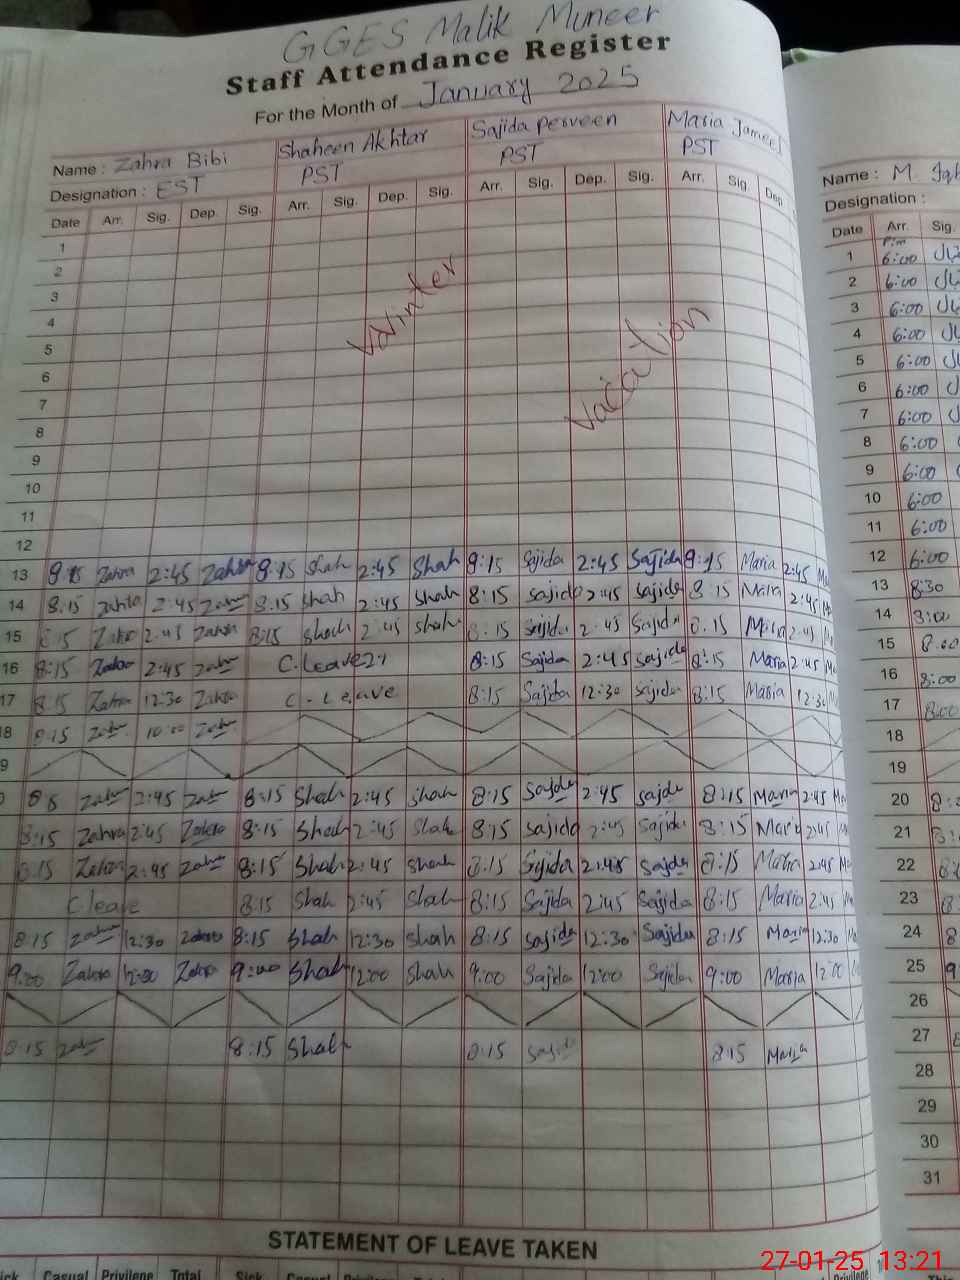 GGES Malik Muneer
Staff Attendance Register
For the Month of January 2025
Name : Zahra Bibi Shaheen Akhtar Sajida perveen Maria Jameel
Designation : EST PST PST PST
Date Arr. Sig. Dep. Sig. Arr. Sig. Dep. Sig. Arr. Sig. Dep. Sig. Arr. Sig. Dep.
1
2
3
4
5
6
7
8
9
10
11
12
Winter
Vacation
13 8:15 Zahra 2:45 Zahra 8:15 Shah 2:45 Shah 8:15 Sajida 2:45 Sajida 8:15 Maria 2:45
14 8:15 Zahra 2:45 Zahra 8:15 Shah 2:45 Shah 8:15 Sajida 2:45 Sajida 8:15 Maria 2:45
15 8:15 Zahra 2:45 Zahra 8:15 Shah 2:45 Shah 8:15 Sajida 2:45 Sajida 8:15 Maria 2:45
16 8:15 Zahra 2:45 Zahra C.Leave 8:15 Sajida 2:45 Sajida 8:15 Maria 2:45
17 8:15 Zahra 12:30 Zahra C-Leave 8:15 Sajida 12:30 Sajida 8:15 Maria 12:30
8 8:15 Zahra 10:00 Zahra
9
Zahra 2:45 Zahra 8:15 Shah 2:45 Shah 8:15 Sajida 2:45 Sajida 8:15 Maria 2:45
8:15 Zahra 2:45 Zahra 8:15 Shah 2:45 Shah 8:15 Sajida 2:45 Sajida 8:15 Maria 2:45
8:15 Zahra 2:45 Zahra 8:15 Shah 2:45 Shah 8:15 Sajida 2:45 Sajida 8:15 Maria 2:45
C.leave 8:15 Shah 2:45 Shah 8:15 Sajida 2:45 Sajida 8:15 Maria 2:45
8:15 Zahra 12:30 Zahra 8:15 Shah 12:30 Shah 8:15 Sajida 12:30 Sajida 8:15 Maria 12:30
9:00 Zahra 12:00 Zahra 9:00 Shah 12:00 Shah 9:00 Sajida 12:00 Sajida 9:00 Maria 12:00
8:15 Zahra 8:15 Shah 8:15 Sajida 8:15 Maria
STATEMENT OF LEAVE TAKEN
Casual Privilene Total Sick Casual
Name : M.
Designation :
Date Arr. Sig.
P.m
1 6:00
2 6:00
3 6:00
4 6:00
5 6:00
6 6:00
7 6:00
8 6:00
9 6:00
10 6:00
11 6:00
12 6:00
13 8:30
14 8:00
15 8:00
16 8:00
17 8:00
18
19
20
21
22
23
24
25
26
27
28
29
30
31
27-01-25 13:21